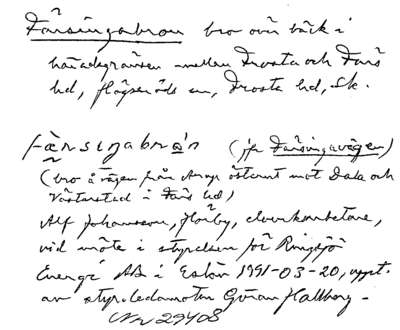 Färsingabron bro över bäck i
häradsgränsen mellan Frosta och Färs
hd, sn, Frosta hd, Sk.
færsiŋabrón (jfr Färsingavägen)
(bro å vägen från österut mot och
i Färs hd)
Alf Johansson, Hörby, elverksarbetare,
vid möte i styrelsen för Ringsjö
Energi AB i Eslöv 1991-03-20, uppt.
av styr.ledamoten Göran Hallberg -
Nr 29408